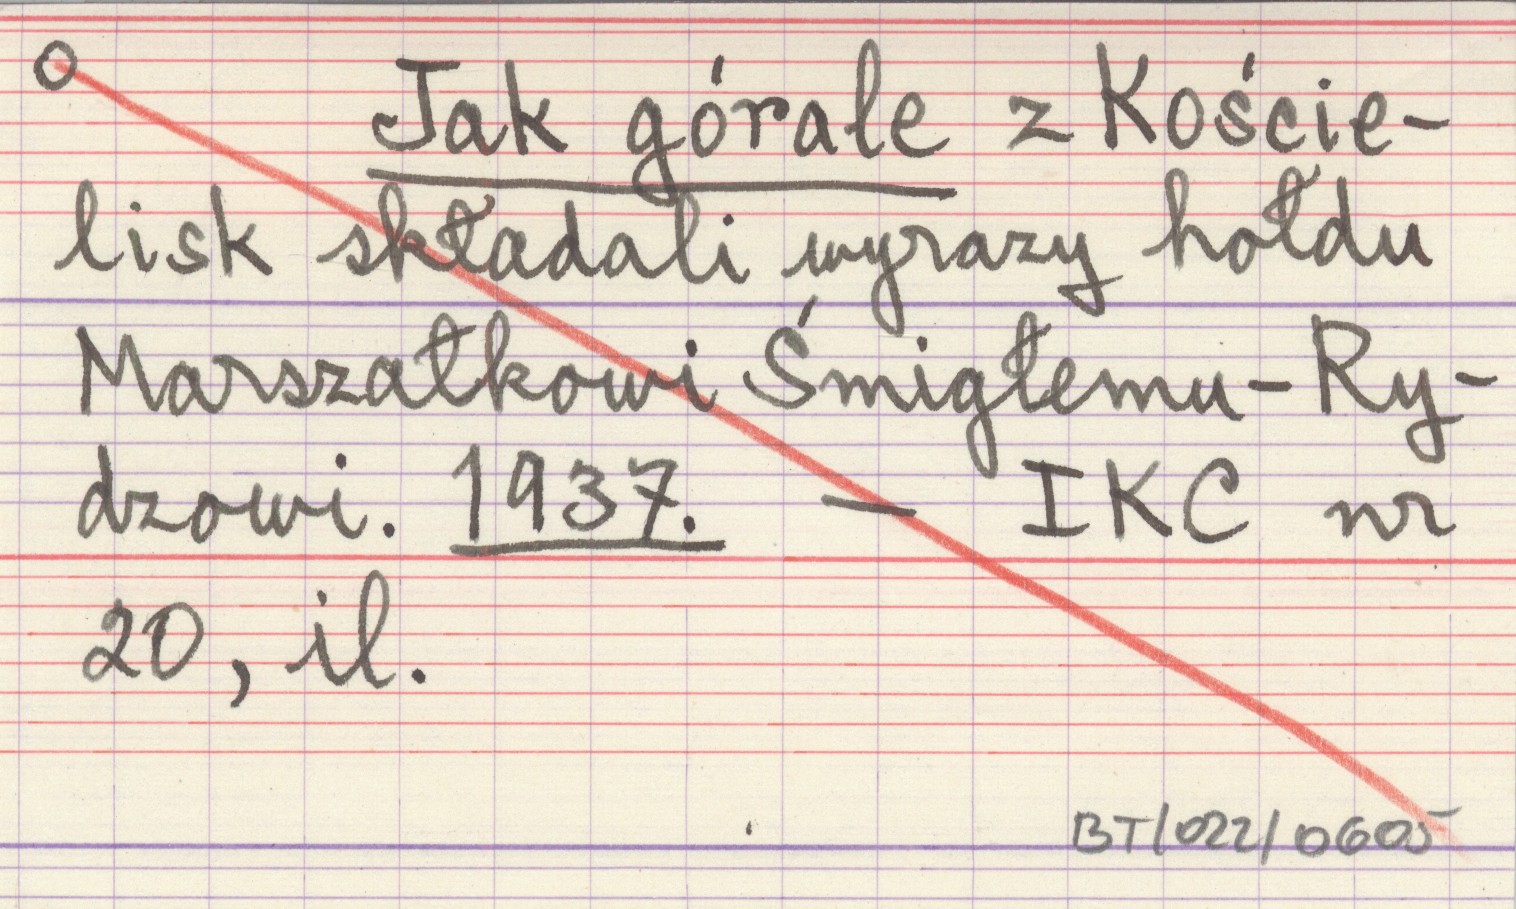 Jak górale z Koście-
lisk składali wyrazy hołdu
Marszałkowi Śmigłemu-Ry-
dzowi. 1937. — IKC nr
20, il.
BT/022/0605